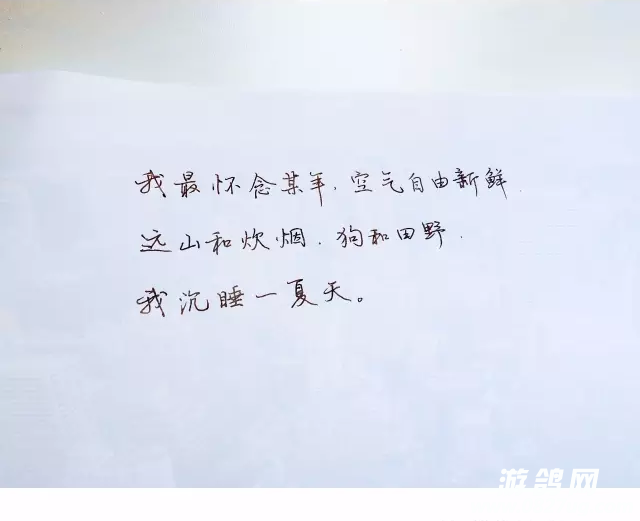 我最怀念某年.空气自由新鲜.
远山和炊烟.狗和田野.
我沉睡一夏天。
游鸽网